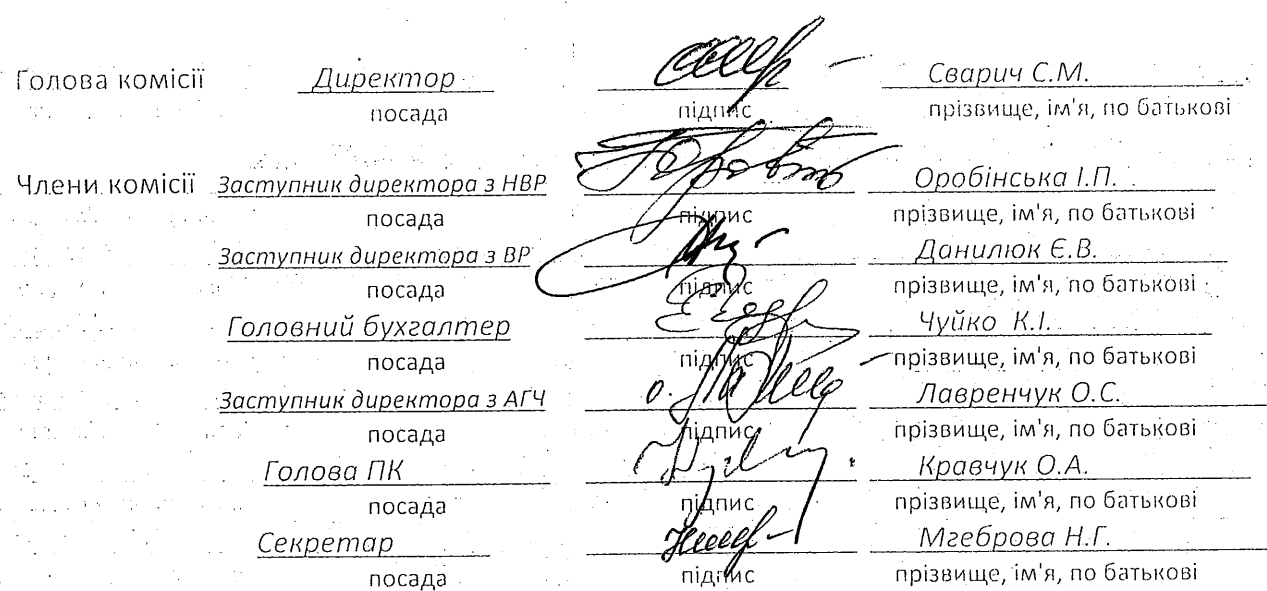 Голова комісії Директор Сварич С.М.
посада підпис прізвище, ім'я, по батькові
Члени комісії Заступник директора з НВР Оробінська І.П.
посада підпис прізвище, ім'я, по батькові
Заступник директора з ВР Данилюк Є.В.
посада підпис прізвище, ім'я, по батькові
Головний бухгалтер Чуйко К.І.
посада підпис прізвище, ім'я, по батькові
Заступник директора з АГЧ Лавренчук О.С.
посада підпис прізвище, ім'я, по батькові
Голова ПК Кравчук О.А.
посада підпис прізвище, ім'я, по батькові
Секретар Мгеброва Н.Г.
посада підпис прізвище, ім'я, по батькові